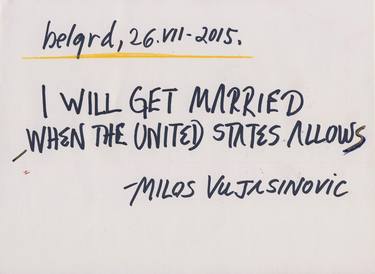 belgrd, 26.VII-2015.
I WILL GET MARRIED
WHEN THE UNITED STATES ALLOWS
-MILOS VUJASINOVIC